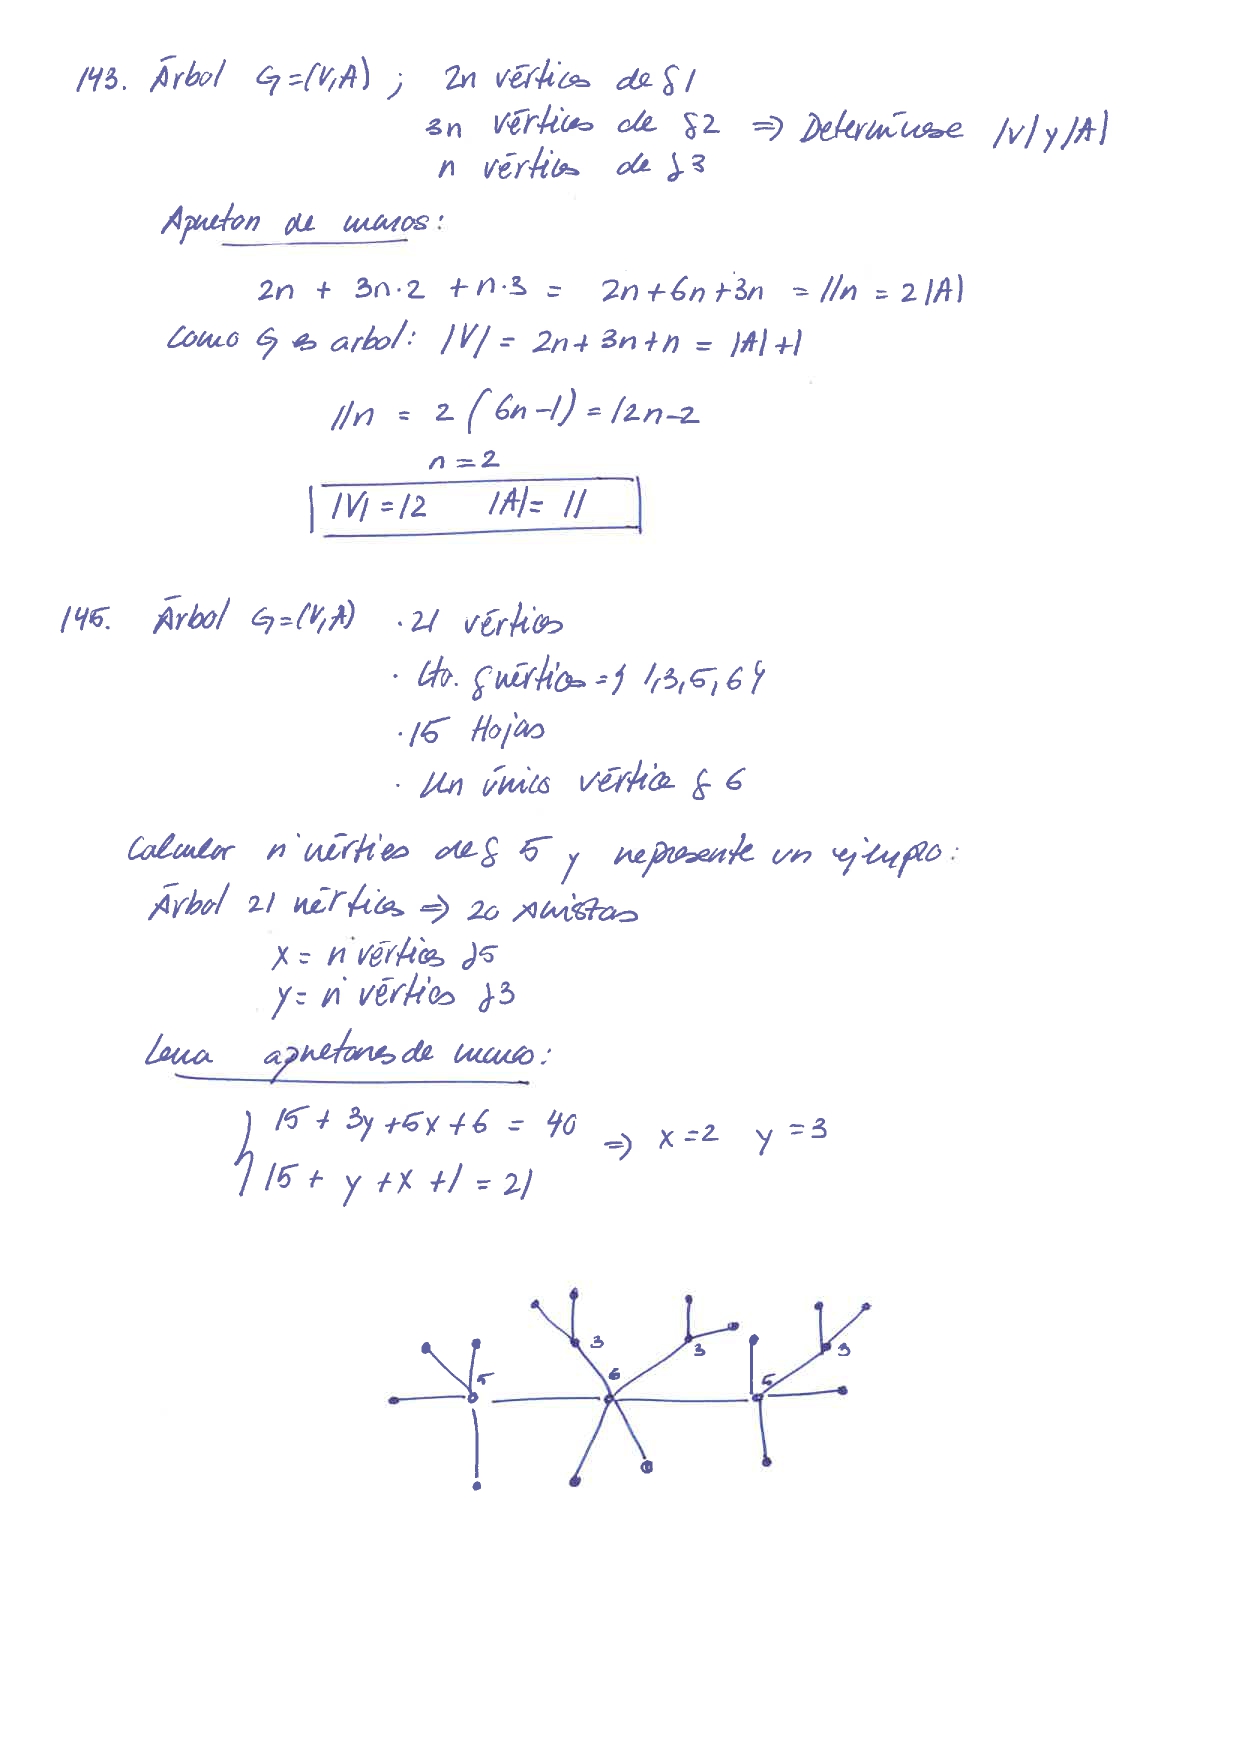 143. Árbol G=(V,A) ; 2n vértices de δ1
3n vértices de δ2 ⇒ Determínese |V| y |A|
n vértices de δ3
Apretón de manos:
2n + 3n·2 + n·3 = 2n+6n+3n = 11n = 2|A|
Como G es arbol: |V| = 2n+3n+n = |A|+1
11n = 2(6n-1) = 12n-2
n=2
|V|=12 |A|= 11
145. Árbol G=(V,A) · 21 vértices
· Cto. δ vértices = {1,3,5,6}
· 15 Hojas
· Un único vértice δ 6
Calcular nº vértices de δ 5 y represente un ejemplo:
Árbol 21 vértices ⇒ 20 aristas
x = nº vértices δ5
y = nº vértices δ3
Lema apretones de manos:
15 + 3y + 5x + 6 = 40 ⇒ x=2 y=3
15 + y + x + 1 = 21
3 3 3
5 6 5